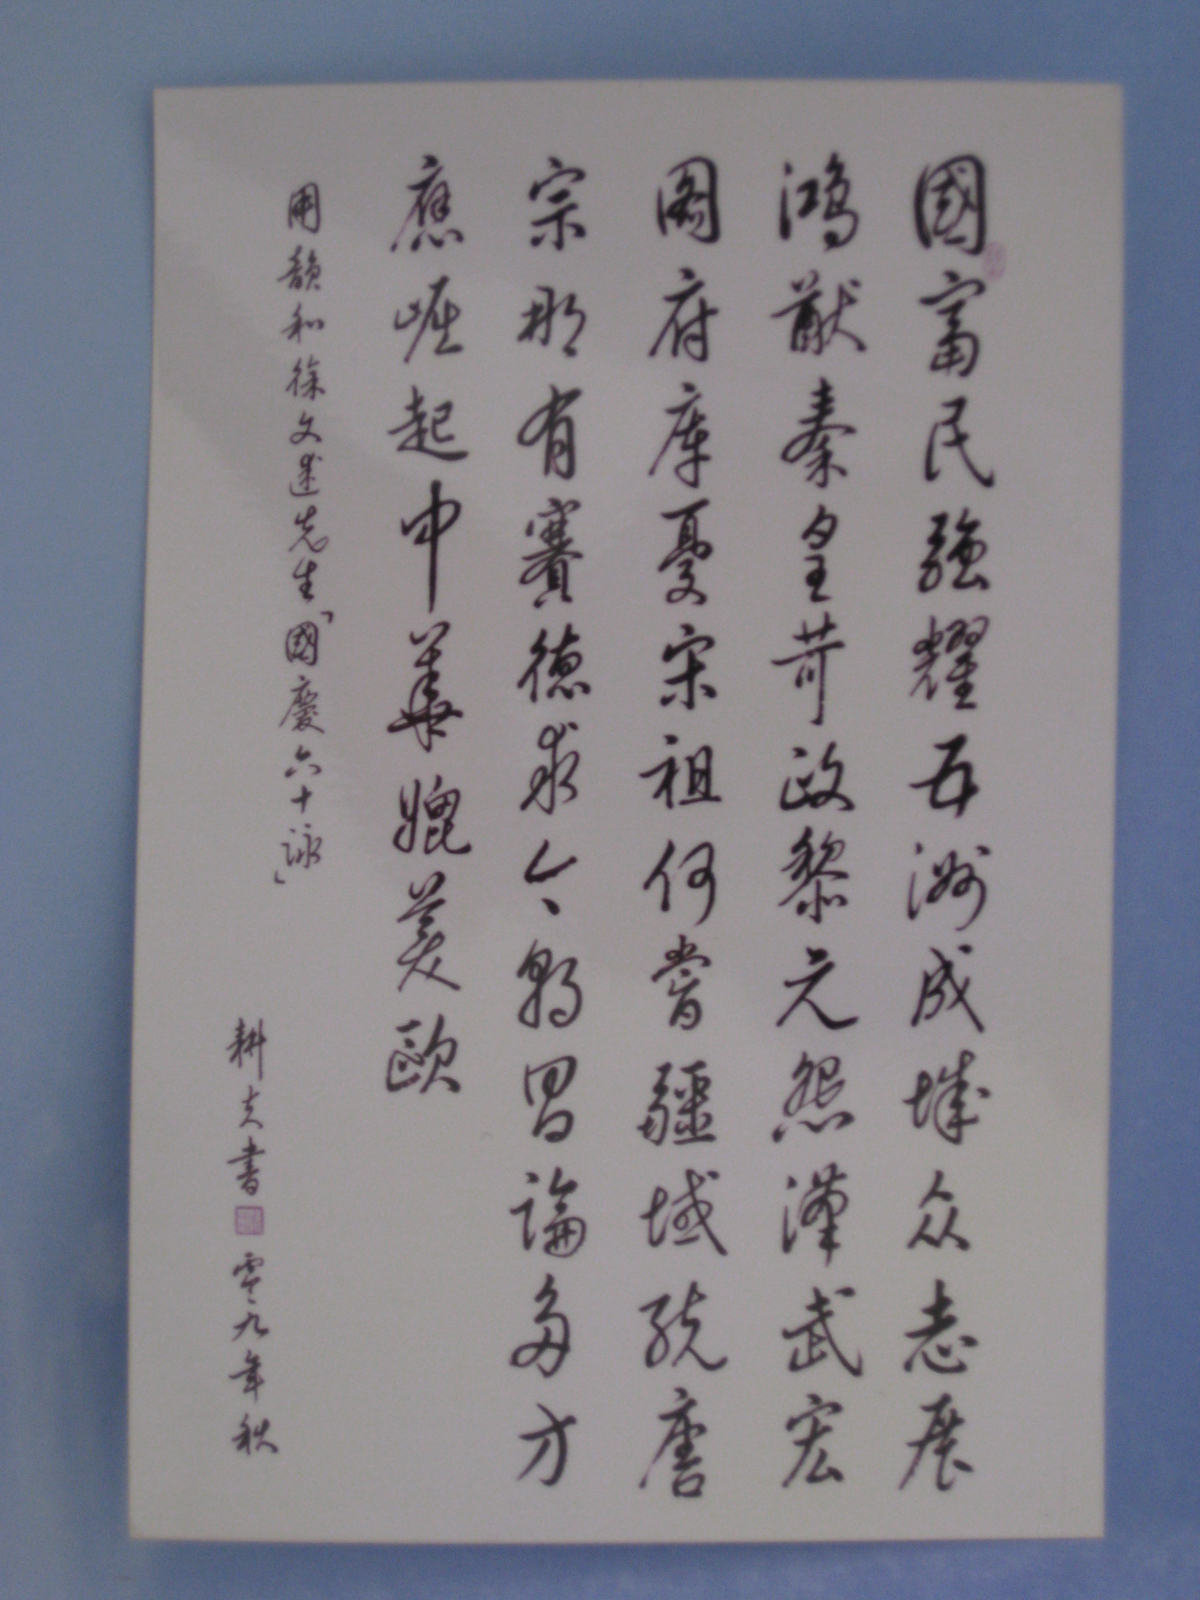 國富民強耀五洲成城众志展
鴻猷秦皇苛政黎元怨漢武宏
圖府庫憂宋祖何嘗疆域统唐
宗那有賽德求今朝昌論多方
應崛起中華媲美歐
用韻和徐文述先生「國慶六十咏」
耕夫書
零九年秋